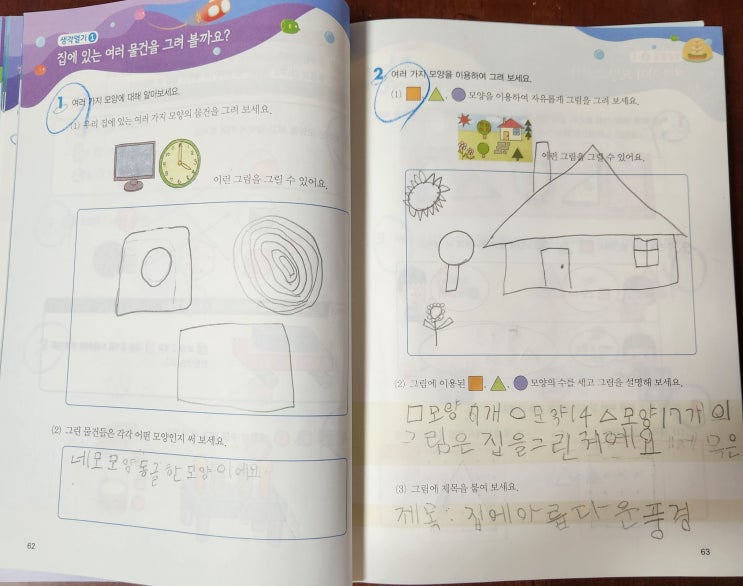 생각열기 1
집에 있는 여러 물건을 그려 볼까요?
1 여러 가지 모양에 대해 알아보세요.
(1) 우리 집에 있는 여러 가지 모양의 물건을 그려 보세요.
이런 그림을 그릴 수 있어요.
(2) 그린 물건들은 각각 어떤 모양인지 써 보세요.
네모 모양 동글한 모양이에요
62
2 여러 가지 모양을 이용하여 그려 보세요.
(1) , , 모양을 이용하여 자유롭게 그림을 그려 보세요.
이런 그림을 그릴 수 있어요.
(2) 그림에 이용된 , , 모양의 수를 세고 그림을 설명해 보세요.
□모양 개 ○모양 4 △모양 17개의
그림은 집을 그린 거예요
(3) 그림에 제목을 붙여 보세요.
제목: 집에 아름다운 풍경
63